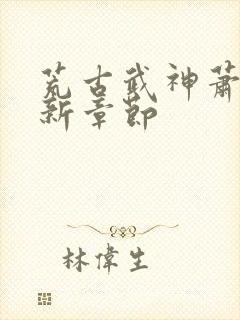 荒古武神蕭
新章節
林偉生